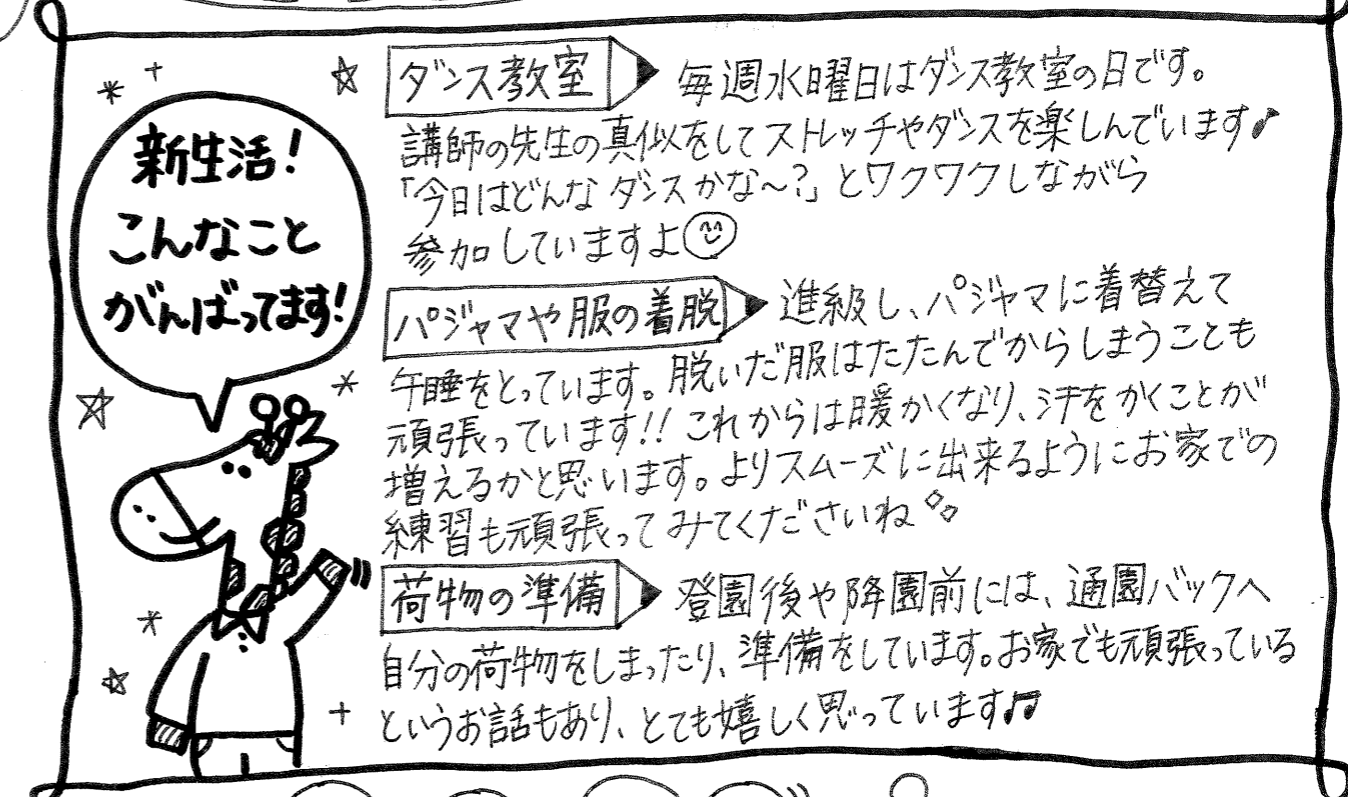 新生活!
こんなこと
がんばってます!
ダンス教室 毎週水曜日はダンス教室の日です。
講師の先生の真似をしてストレッチやダンスを楽しんでいます♪
「今日はどんなダンスかな〜?」とワクワクしながら
参加していますよ
パジャマや服の着脱 進級し、パジャマに着替えて
午睡をとっています。脱いだ服はたたんでからしまうことも
頑張っています!!これからは暖かくなり、汗をかくことが
増えるかと思います。よりスムーズに出来るようにお家での
練習も頑張ってみてくださいね
荷物の準備 登園後や降園前には、通園バックへ
自分の荷物をしまったり、準備をしています。お家でも頑張っている
というお話もあり、とても嬉しく思っています♫